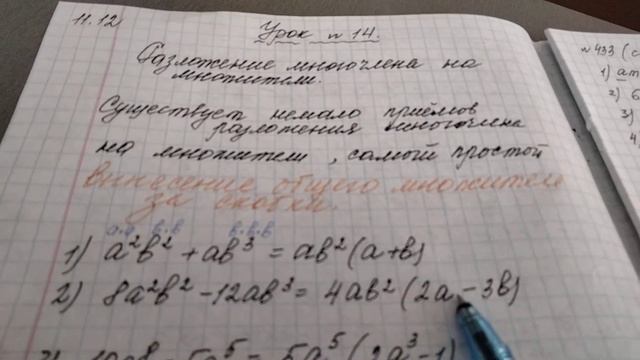 11.12
Урок n 14.
Разложение многочлена на
множители.
Существует немало приёмов
разложения многочлена
на множители, самый простой
Вынесение общего множителя
за скобки.
a·a b·b b·b·b
1) a²b² + ab³ = ab²(a+b)
2) 8a²b² - 12ab³ = 4ab²(2a - 3b)
5a⁵ = 5a⁵(2a³-1)
n 433 (
1) am
2) 6
3)
4